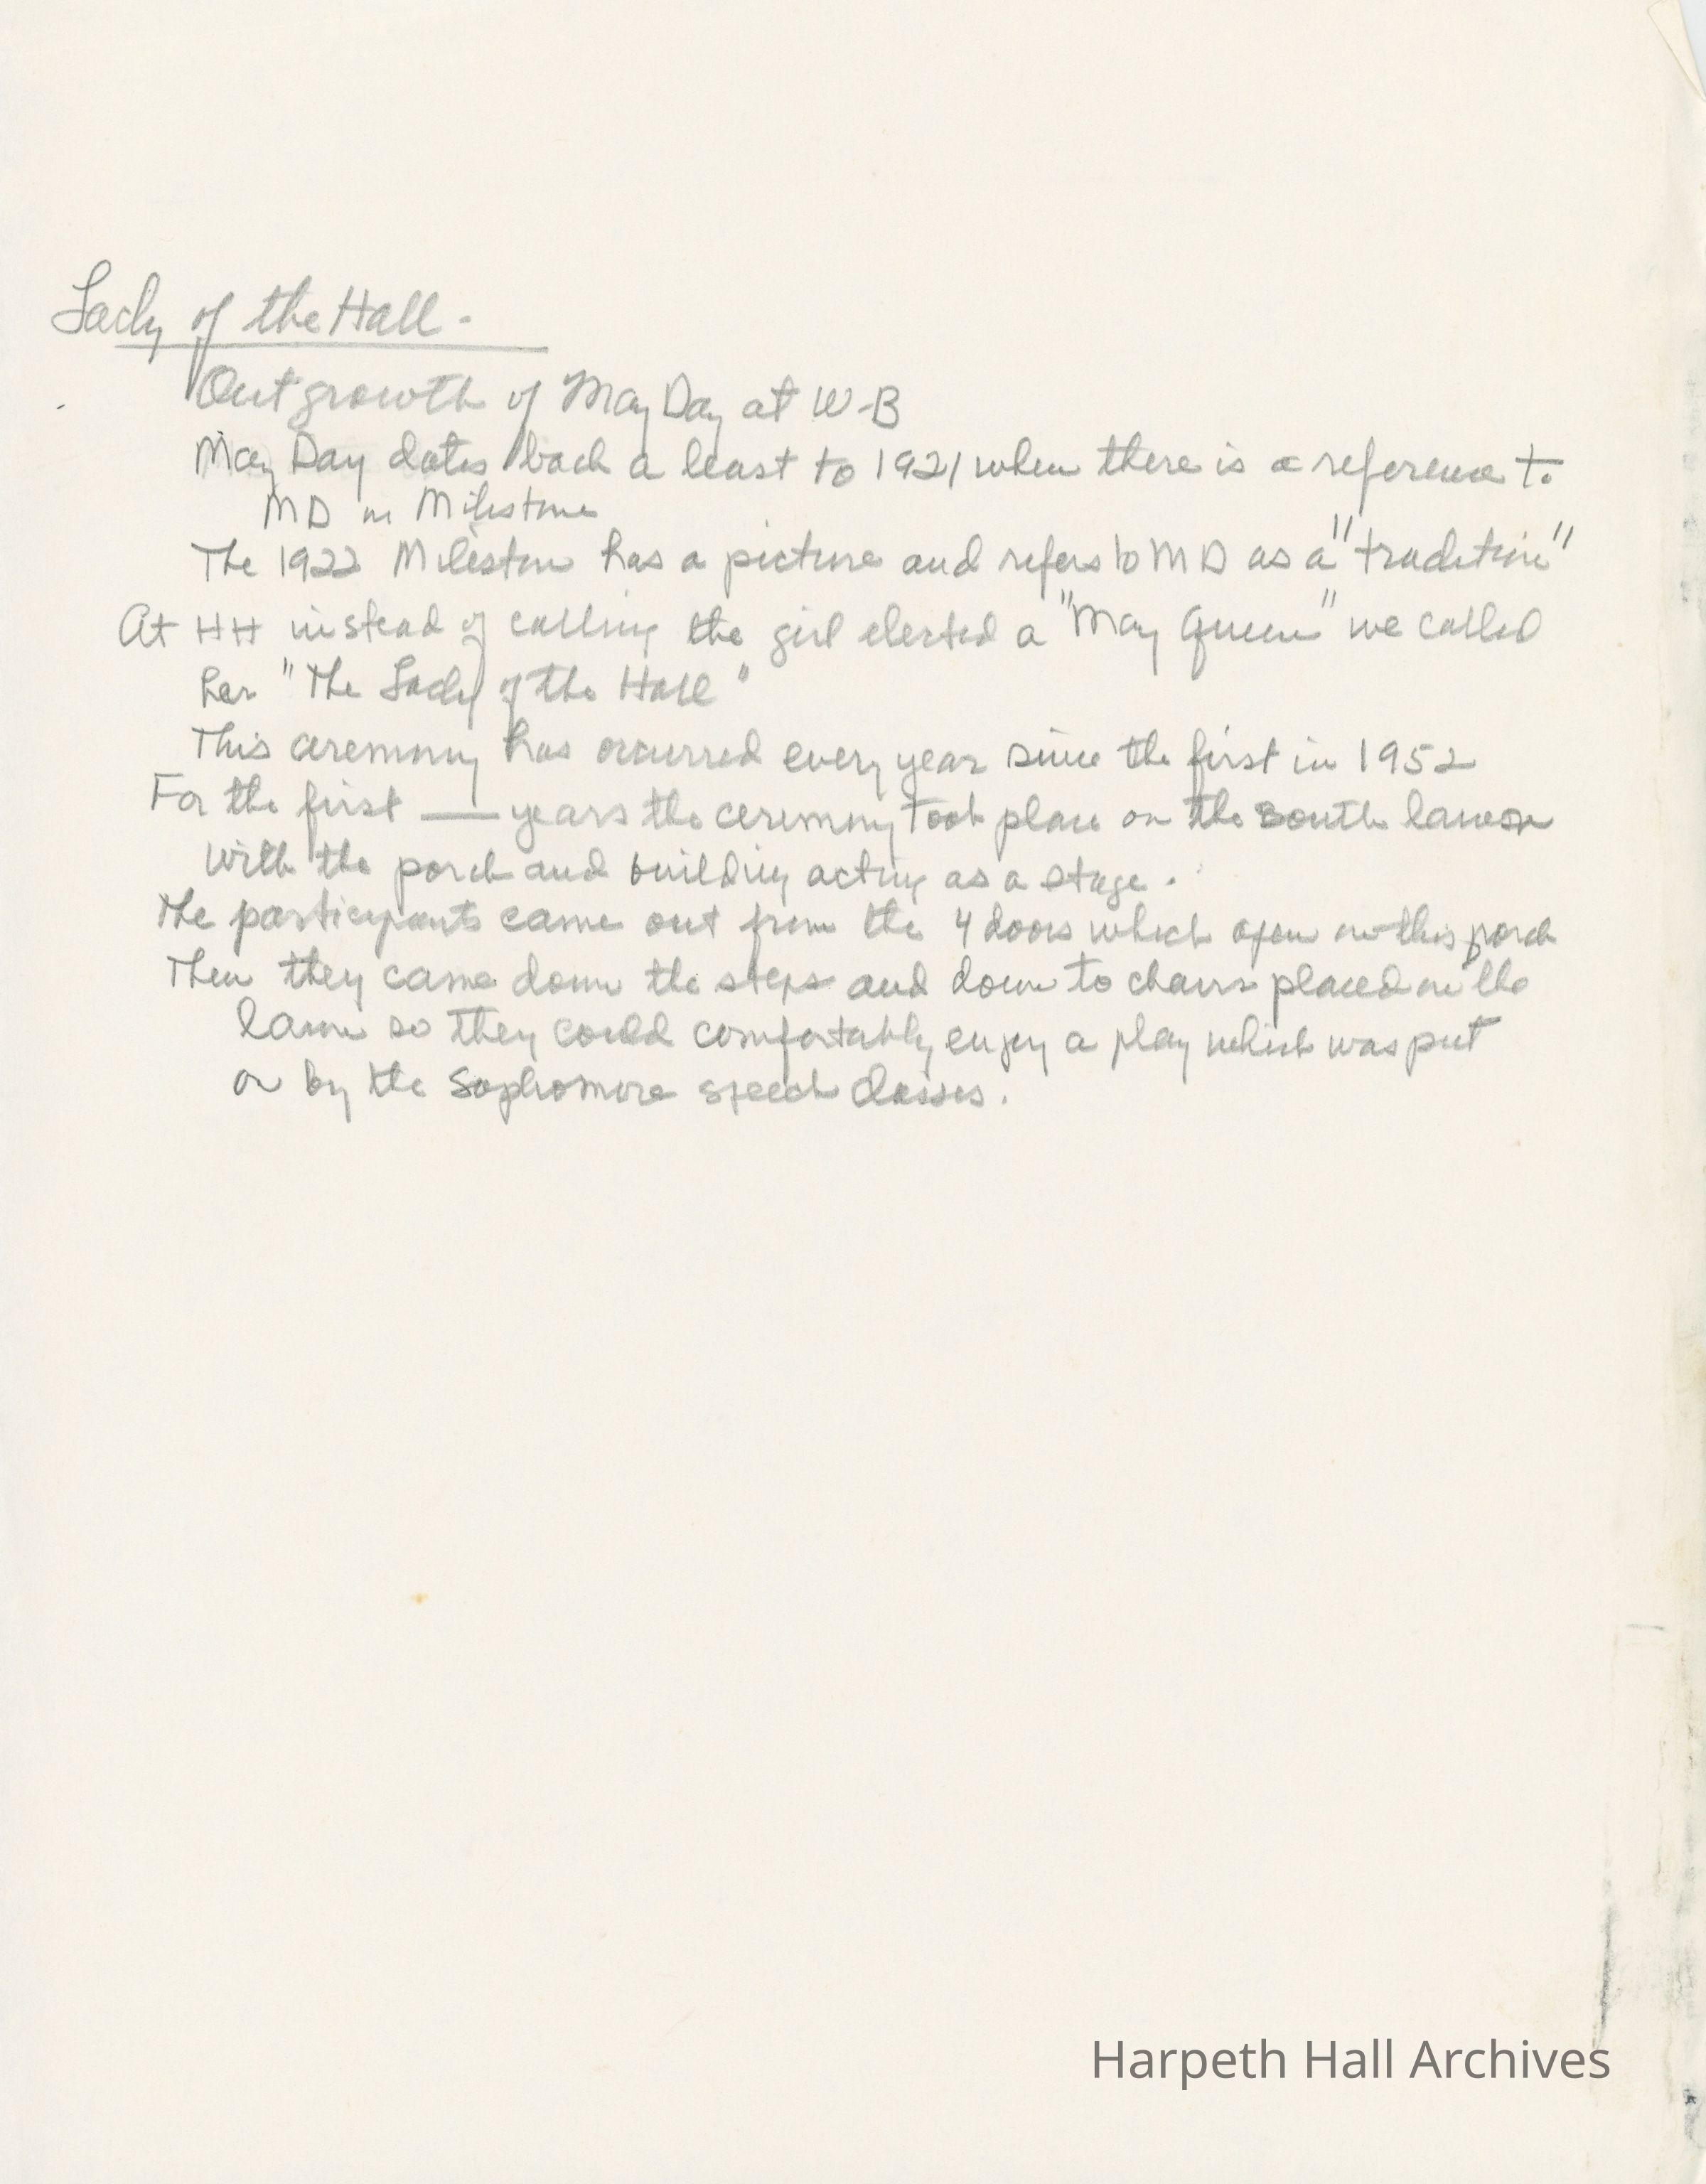 Lady of the Hall.
Outgrowth of May Day at W-B
May Day dates back a least to 1921 when there is a reference to
MD in Milestone
The 1922 Milestone has a picture and refers to MD as a "tradition"
At HH instead of calling the girl elected a "May Queen" we called
her "The Lady of the Hall"
This ceremony has occurred every year since the first in 1952
For the first —— years the ceremony took place on the South lawn
with the porch and building acting as a stage.
The participants came out from the 4 doors which open on this porch
Then they came down the steps and down to chairs placed on the
lawn so they could comfortably enjoy a play which was put
on by the Sophomore speech classes.
Harpeth Hall Archives